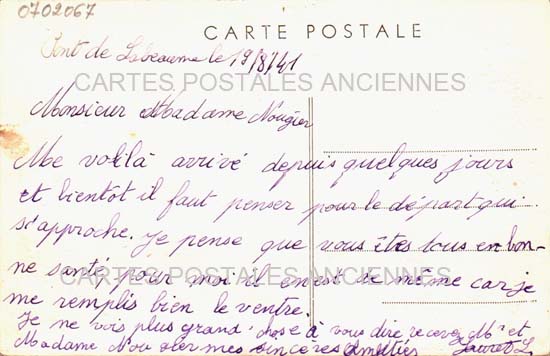 0702067
CARTE POSTALE
Pont de Labeaume le 19/8/41
CARTES POSTALES ANCIENNES
Monsieur Madame Nougier
Me voilà arrivé depuis quelques jours
et bientôt il faut penser pour le départ qui
s'approche. Je pense que vous êtes tous en bon-
ne santé pour moi il en est de même car je
CARTES POSTALES ANCIENNES
me remplis bien le ventre.
Je ne vois plus grand chose à vous dire recevez Mr et
Madame Nougier mes sincères amitiés